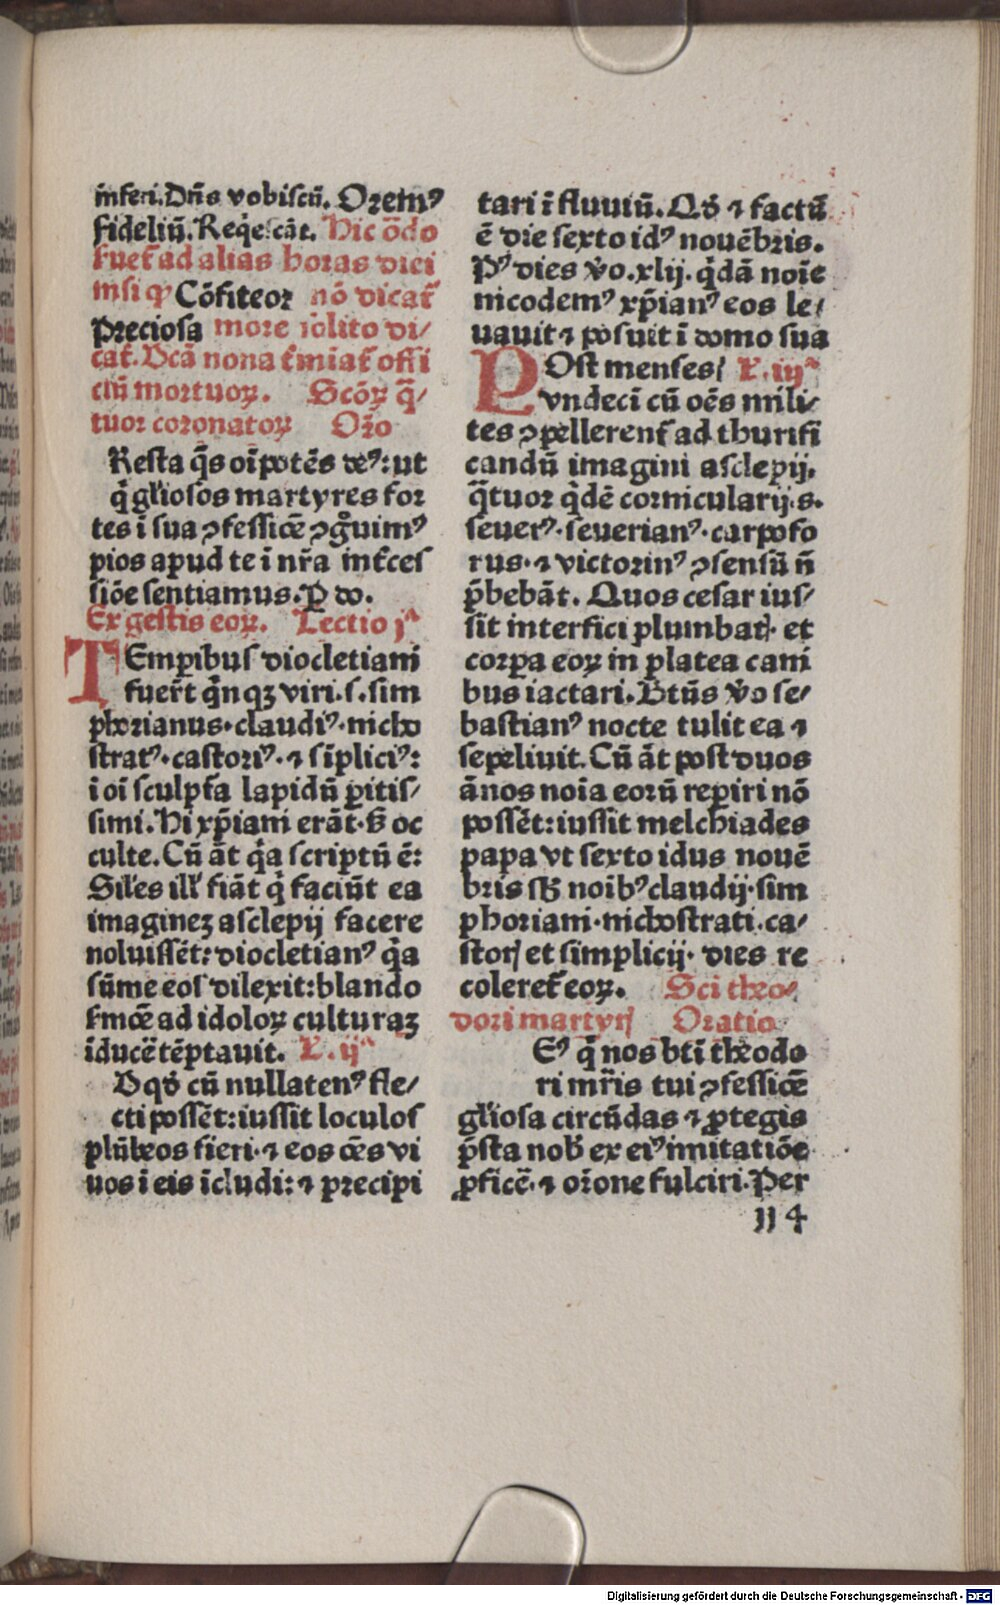 inferi. Dñs vobiscū. Oremꝰ
fideliū. Reqͥescāt. Hic ōdo
ẜuet̄ ad alias horas diei
nisi ꝙ Cōfiteor nō dicat̄
Preciosa more solito di⸗
cat̄. Dcā nona t̄miat̄ offi
ciū mortuoꝝ. Scōꝝ q̄⸗
tuor coronatoꝝ Oro
Resta q̄s oīpotēs deꝰ: ut
qͥ gl'iosos martyres for
tes ī sua ꝯfessiōe ꝯgͦuimꝰ
pios apud te ī nr̄a int̄ces
siōe sentiamus. P do.
Ex gestis eoꝝ. Lectio jª
TEmporibus diocletiani
fuer̄t qͥnqꝫ viri. s. sim
phorianus. claudiꝰ. nicho
stratꝰ. castoriꝰ. ⁊ sīpliciꝰ:
ī oī sculpt̄a lapidū pitis⸗
simi. Hi xp̄iani erāt. ẜ oc
culte. Cū āt qͥa scriptū ē:
Sil'es ill' fiāt qͥ faciūt ea
imaginez asclepij facere
noluissēt: diocletianꝰ qͥa
sūme eos dilexit: blando
ẜmōe ad idoloꝝ culturaꝫ
īducē tēptauit. L. ijª
Dqd' cū nullatenꝰ fle⸗
cti possēt: iussit loculos
plūbeos fieri. ⁊ eos oēs vi
uos ī eis īcludi: ⁊ precipi
tari ī fluuiū. Qd' ⁊ factū
ē die sexto idꝰ nouēbris.
Pꝰ dies v̊o. xlij. qͥdā noīe
nicodemꝰ xp̄ianꝰ eos le⸗
uauit ⁊ posuit ī domo sua
POst menses L. iijª
vndecī cū oēs mili⸗
tes ꝯpellerent̄ ad thurifi
candū imagini asclepij.
q̄tuor qͥdē cornicularij. s.
seuerꝰ. seuerianꝰ. carpofo
rus. ⁊ victorinꝰ ꝯsensū ñ
p̄bebāt. Quos cesar ius⸗
sit interfici plumbatꝭ. et
corpa eoꝝ in platea cani
bus iactari. Btūs v̊o se⸗
bastianꝰ nocte tulit ea ⁊
sepeliuit. Cū āt post duos
ānos noīa eorū reperiri nō
possēt: iussit melchiades
papa vt sexto idus nouē
bris sb' noībꝰ claudij. sim
phoriani. nichostrati. ca⸗
storꝭ et simplicij. dies re
coleret̄ eoꝝ. Sci theo⸗
dori martyrꝭ Oratio
Eꝰ qͥ nos btī theodo
ri mr̄is tui ꝯfessiōe
gl'iosa circūdas ⁊ ꝓtegis
p̄sta nob' ex eiꝰ imitatiōe
ꝓficē. ⁊ or̄one fulciri. Per
jj 4
Digitalisierung gefördert durch die Deutsche Forschungsgemeinschaft · DFG